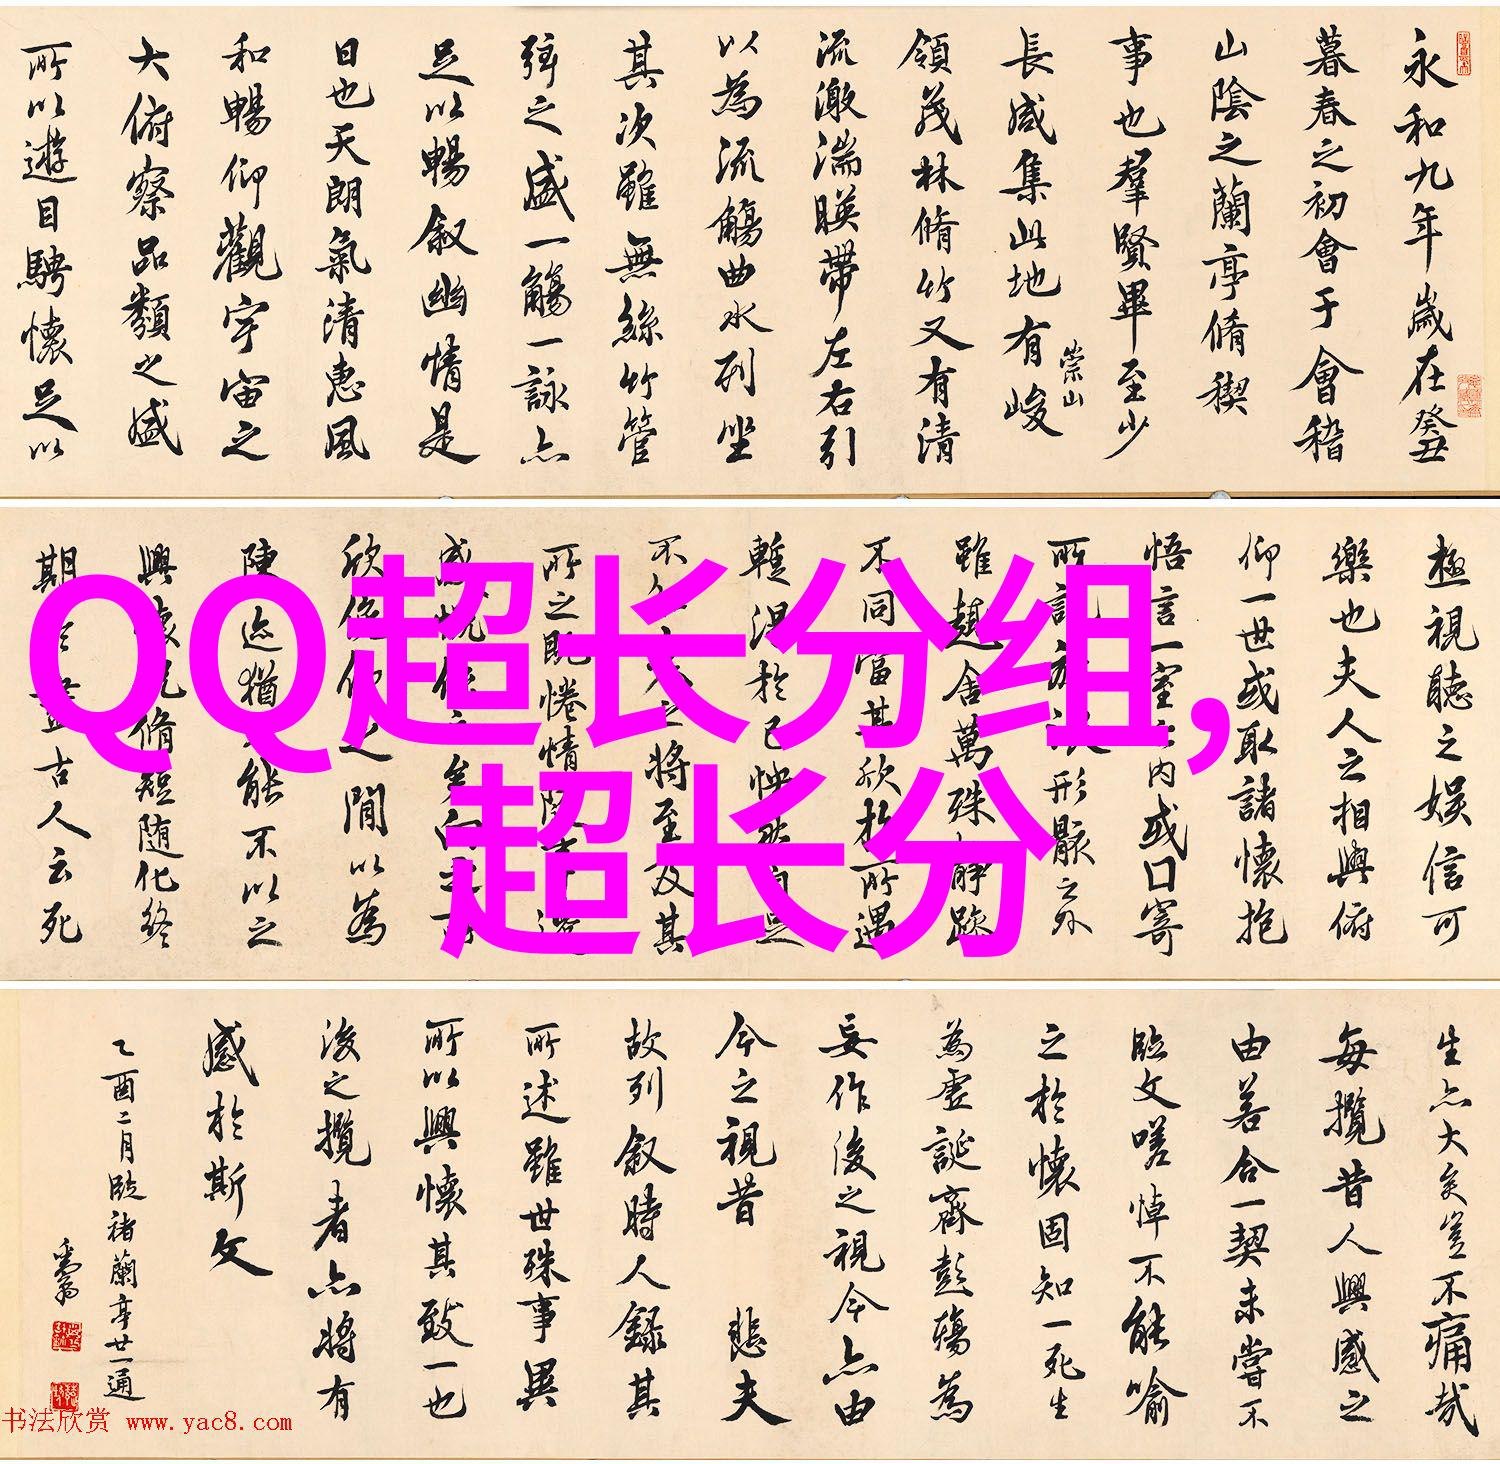 永和九年歲在癸丑
暮春之初會于會稽
山陰之蘭亭脩稧
事也羣賢畢至少
長咸集此地有峻
崇山
領茂林脩竹又有清
流激湍暎帶左右引
以為流觴曲水列坐
其次雖無絲竹管
弦之盛一觴一詠亦
足以暢叙幽情是
日也天朗氣清惠風
和暢仰觀宇宙之
大俯察品類之盛
所以遊目騁懷足以
極視聽之娛信可
樂也夫人之相與俯
仰一世或取諸懷抱
悟言一室內或口寄
所形骸之外
雖趣舍萬殊
不同當其欣於所遇
蹔得於己
不之將至及其
所之既惓情
感
欣之間以為
陳迹猶能不以之
興懷脩短隨化終
期古人云死
QQ超长分组,
超长分
生亦大矣豈不痛哉
每攬昔人興感之
由若合一契未嘗不
臨文嗟悼不能喻
之於懷固知一死生
為虛誕齊彭殤為
妄作後之視今亦由
今之視昔 悲夫
故列叙時人錄其
所述雖世殊事異
所以興懷其致一也
後之攬者亦將有
感於斯文
乙酉二月臨褚蘭亭廿一通
书法欣赏 www.yac8.com